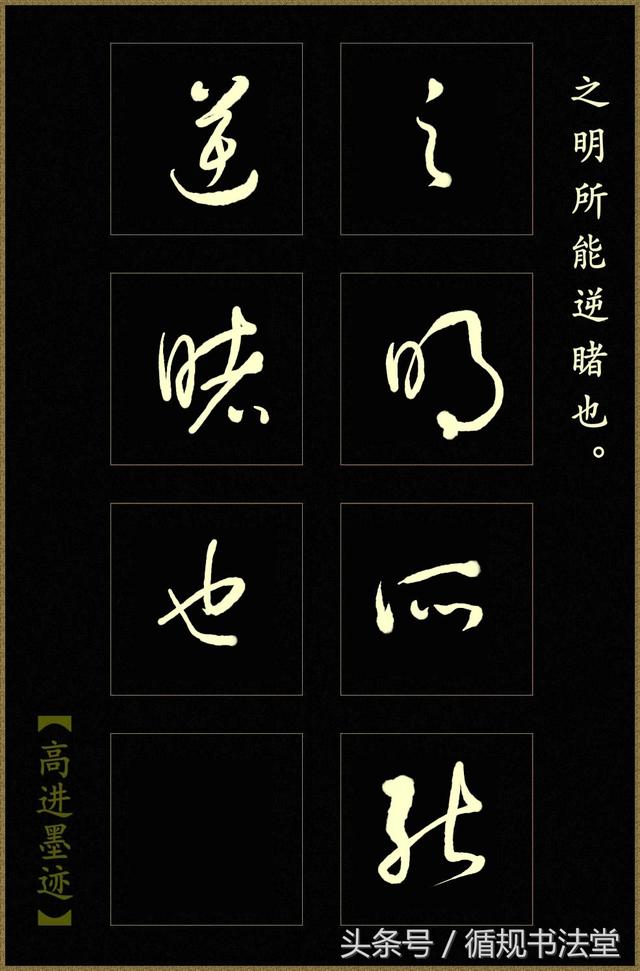 之明所能逆睹也。
之明所能
逆睹也
【高进墨迹】
头条号 / 循规书法堂